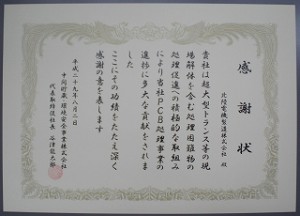 感謝状
北陸電機製造株式会社 殿
貴社は超大型トランス等の現
場解体を含む処理困難物の
処理促進への積極的な取組み
により当社PCB処理事業の
進捗に多大な貢献をされま
した
ここにその功績をたたえ深く
感謝の意を表します
平成二十九年八月二日
中間貯蔵・環境安全事業株式会社
代表取締役社長 谷津龍太郎